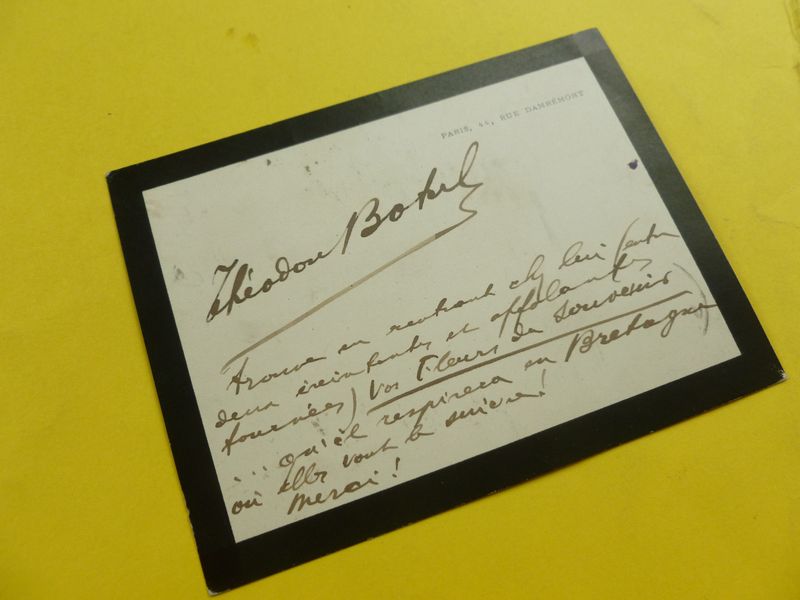 PARIS, 44, RUE DAMRÉMONT
Théodore Botrel
trouve en rentrant chez lui (entre
deux éreintantes et affolantes
tournées) vos Fleurs du Souvenir
... qu'il respirera en Bretagne)
où elles vont le suivre!
Merci!